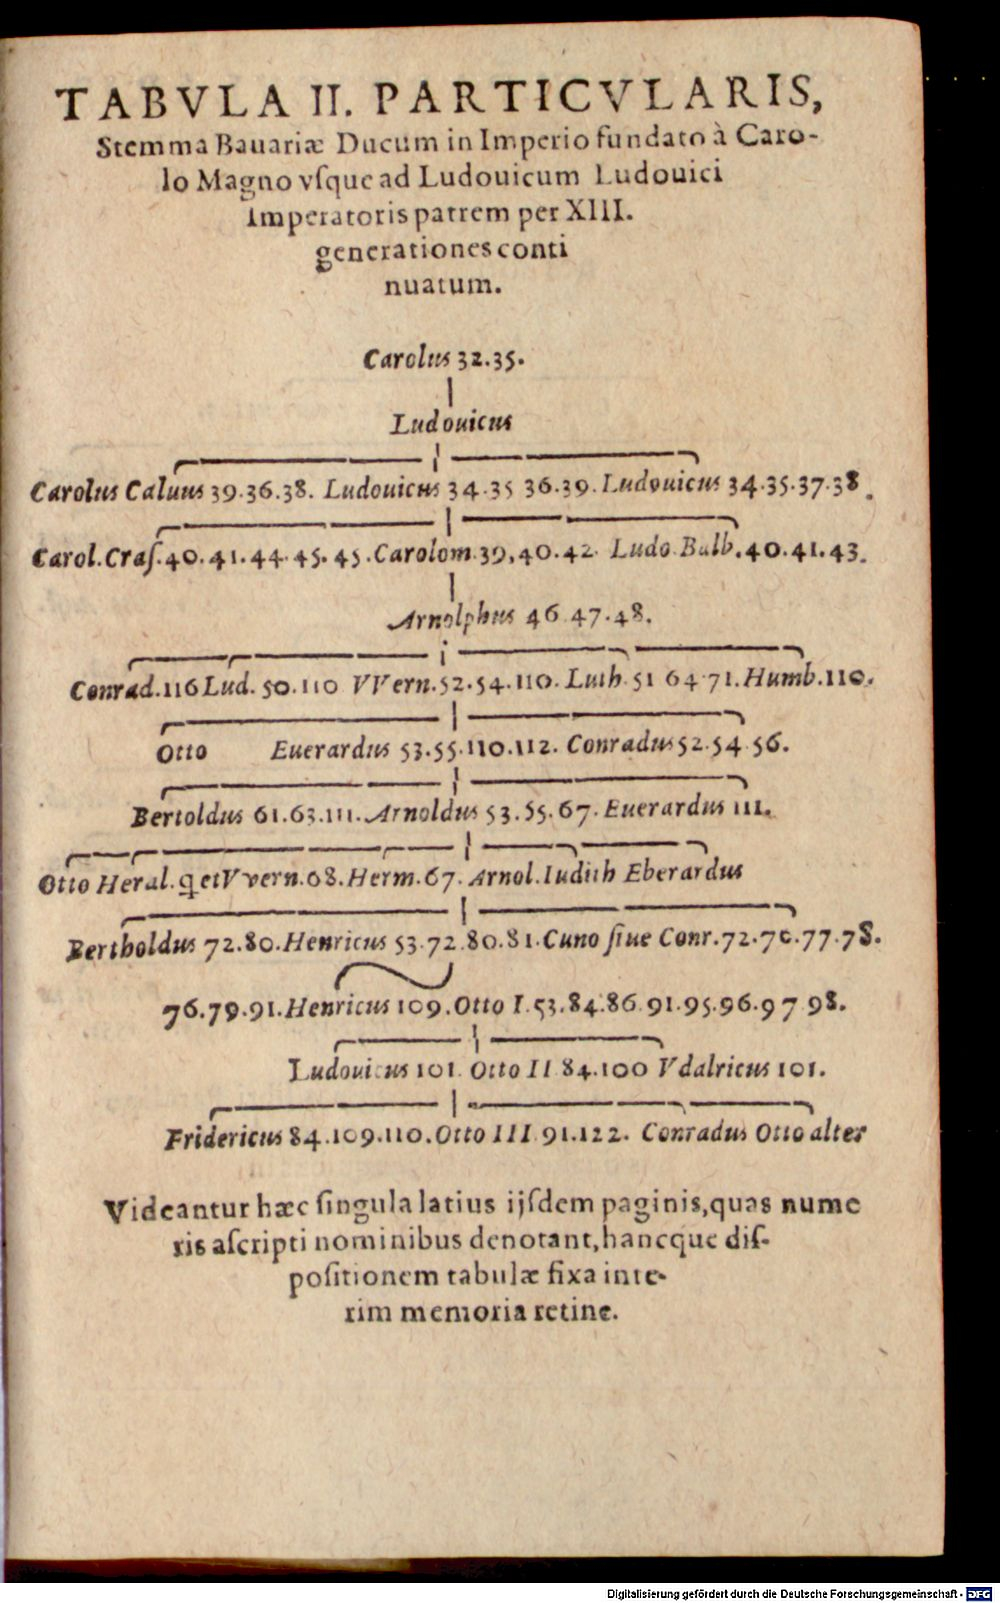 TABVLA II. PARTICVLARIS,
Stemma Bauariæ Ducum in Imperio fundato à Caro-
lo Magno vſque ad Ludouicum Ludouici
Imperatoris patrem per XIII.
generationes conti
nuatum.
Carolus 32.35.
Ludouicus
Carolus Caluus 39.36.38. Ludouicus 34.35 36.39. Ludouicus 34.35.37.38.
Carol.Craſ.40.41.44.45.45.Carolom.39,40.42. Ludo.Balb.40.41.43.
Arnolphus 46.47.48.
Conrad.116 Lud. 50.110 VVern.52.54.110. Luth.51 64.71.Humb.110.
Otto Euerardus 53.55.110.112. Conradus 52.54.56.
Bertoldus 61.63.111.Arnoldus 53.55.67.Euerardus 111.
Otto Heral. etVvern.68.Herm.67. Arnol.Iudith Eberardus
Bertholdus 72.80.Henricus 53.72.80.81.Cuno ſiue Conr.72.76.77.78.
76.79.91.Henricus 109.Otto I.53.84.86.91.95.96.97.98.
Ludouicus 101. Otto II 84.100 Vdalricus 101.
Fridericus 84.109.110.Otto III 91.122. Conradus Otto alter
Videantur hæc ſingula latius ijſdem paginis,quas nume
ris aſcripti nominibus denotant,hancque diſ-
poſitionem tabulæ fixa inte-
rim memoria retine.
Digitalisierung gefördert durch die Deutsche Forschungsgemeinschaft - DFG